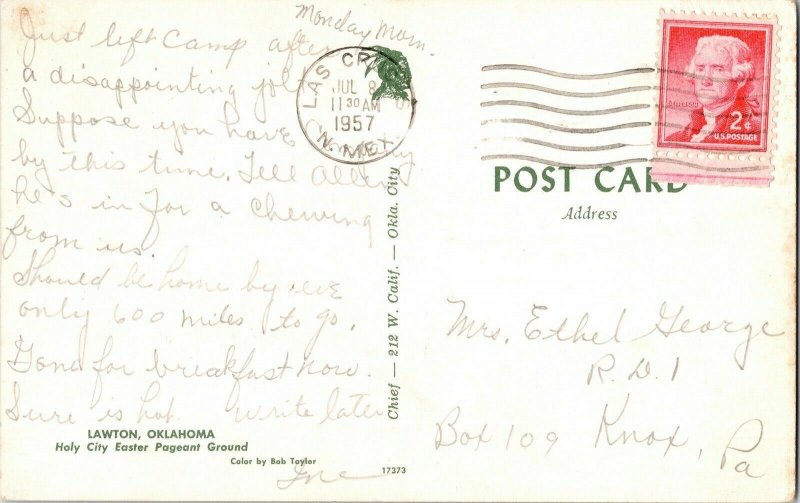 Monday Morn.
Just left camp after
a disappointing
Suppose you have
by this time. Tell Allen
he's in for a chewing
from us.
Should be home by eve
only 600 miles to go.
Gone for breakfast now.
Sure is hot. Write later
LAWTON, OKLAHOMA
Holy City Easter Pageant Ground
Color by Bob Taylor
17373
Chief — 212 W. Calif. — Okla. City
LAS CRUCES
JUL 8
11 30 AM
1957
N. MEX.
2¢
U.S. POSTAGE
POST CARD
Address
Mrs. Ethel George
R.D.1
Box 109 Knox, Pa